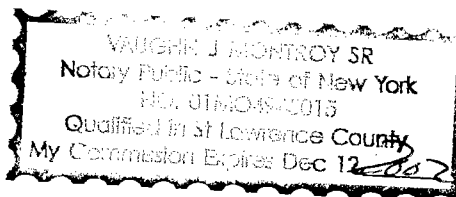 VAUGHN J MONTROY SR
Notary Public - State of New York
NO. 01MO
Qualified in St Lawrence County
My Commission Expires Dec 12 2002